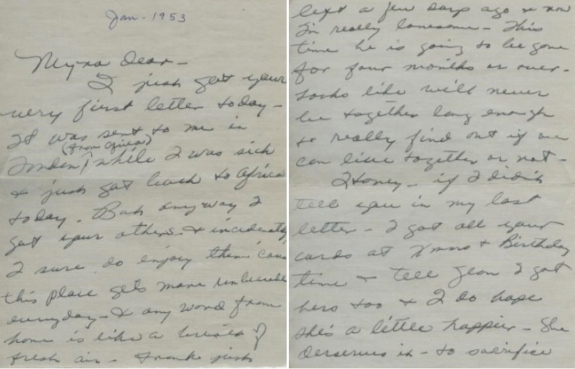 Jan - 1953
Myrna Dear -
I just got your
very first letter today -
It was sent to me in
(from Africa)
London / while I was sick
& just got back to Africa
today. But anyway I
got your others - & incidently
I sure do enjoy them 'cause
this place gets more unbearable
everyday - & any word from
home is like a breath of
fresh air - Frank just
left a few days ago & now
I'm really lonesome - This
time he is going to be gone
for four months or over -
looks like we'll never
be together long enough
to really find out if we
can live together or not -
Honey - if I didn't
tell you in my last
letter - I got all your
cards at Xmas & Birthday
time & tell I got
hers too & I do hope
she's a little happier - She
deserves it - to sacrifice